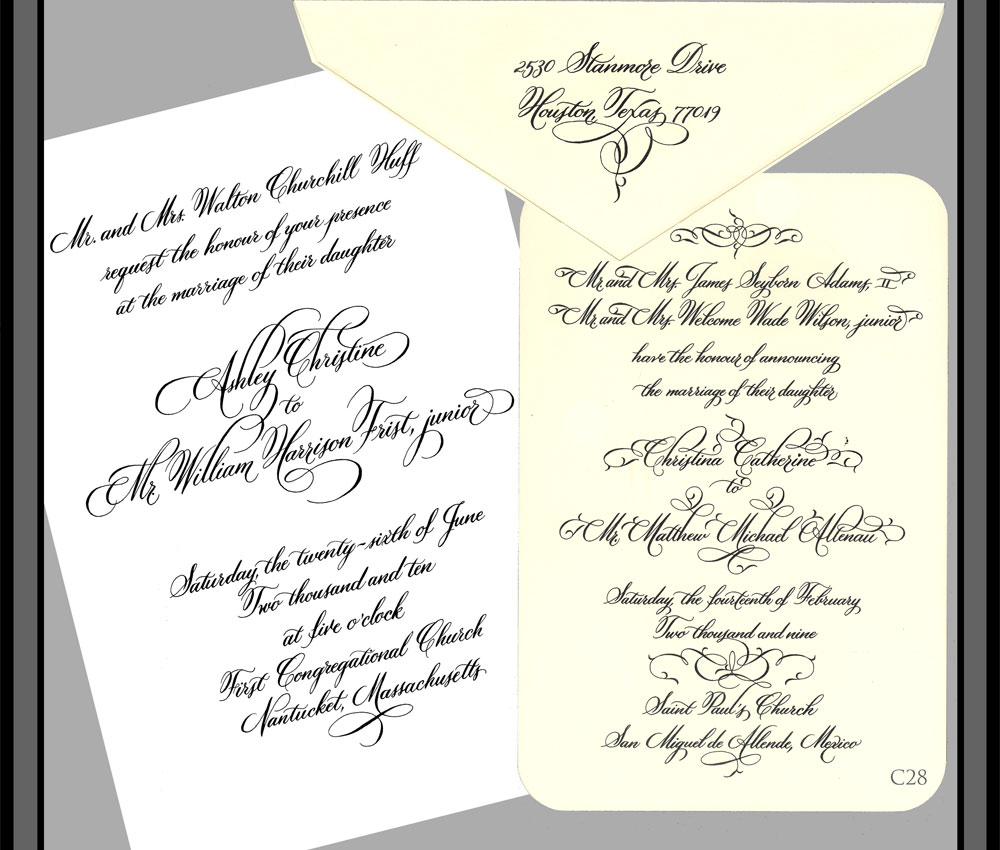 2530 Stanmore Drive
Houston, Texas 77019
Mr. and Mrs. Walton Churchill Huff
request the honour of your presence
at the marriage of their daughter
Ashley Christine
to
Mr. William Harrison Frist, junior
Saturday, the twenty-sixth of June
Two thousand and ten
at five o'clock
First Congregational Church
Nantucket, Massachusetts
Mr. and Mrs. James Seyborn Adams, II
Mr. and Mrs. Welcome Wade Wilson, junior
have the honour of announcing
the marriage of their daughter
Christina Catherine
to
Mr. Matthew Michael Allenau
Saturday, the fourteenth of February
Two thousand and nine
Saint Paul's Church
San Miguel de Allende, Mexico
C28